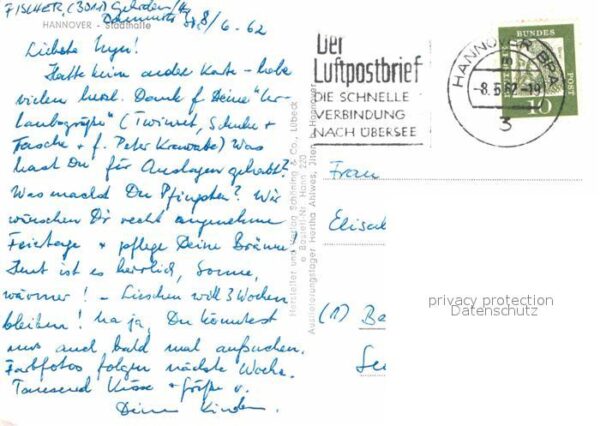 FISCHER, (301) Gehrden/
8/6.62
HANNOVER - Stadthalle
Hatte keine andere Karte - habe
vielen herzl. Dank f. Deine "Ur-
laubsgrüße" (Twinset, Schuhe +
Tasche + f. Peter Krawatte) Was
hast Du für Auslagen gehabt?
Was machst Du Pfingsten? Wir
wünschen Dir recht angenehme
Feiertage + pflege Deine Bräune.
Heut ist es herrlich, Sonne,
wärmer! - Lieschen will 3 Wochen
bleiben! Na ja, Du könntest
uns auch bald mal aufsuchen.
Farbfotos folgen nächste Woche.
Tausend Küsse + Grüße v.
Deinen Kindern.
Hersteller und Verlag Schöning & Co., Lübeck
Bestell-Nr. Hann 220
Auslieferungslager Hertha Ahlwes, Hannover
Der
Luftpostbrief
DIE SCHNELLE
VERBINDUNG
NACH ÜBERSEE
HANNOVER BPA
-8.6.62-19
3
DEUTSCHE
BUNDES
POST
10
Frau
Elisa
(1) Be
privacy protection
Datenschutz